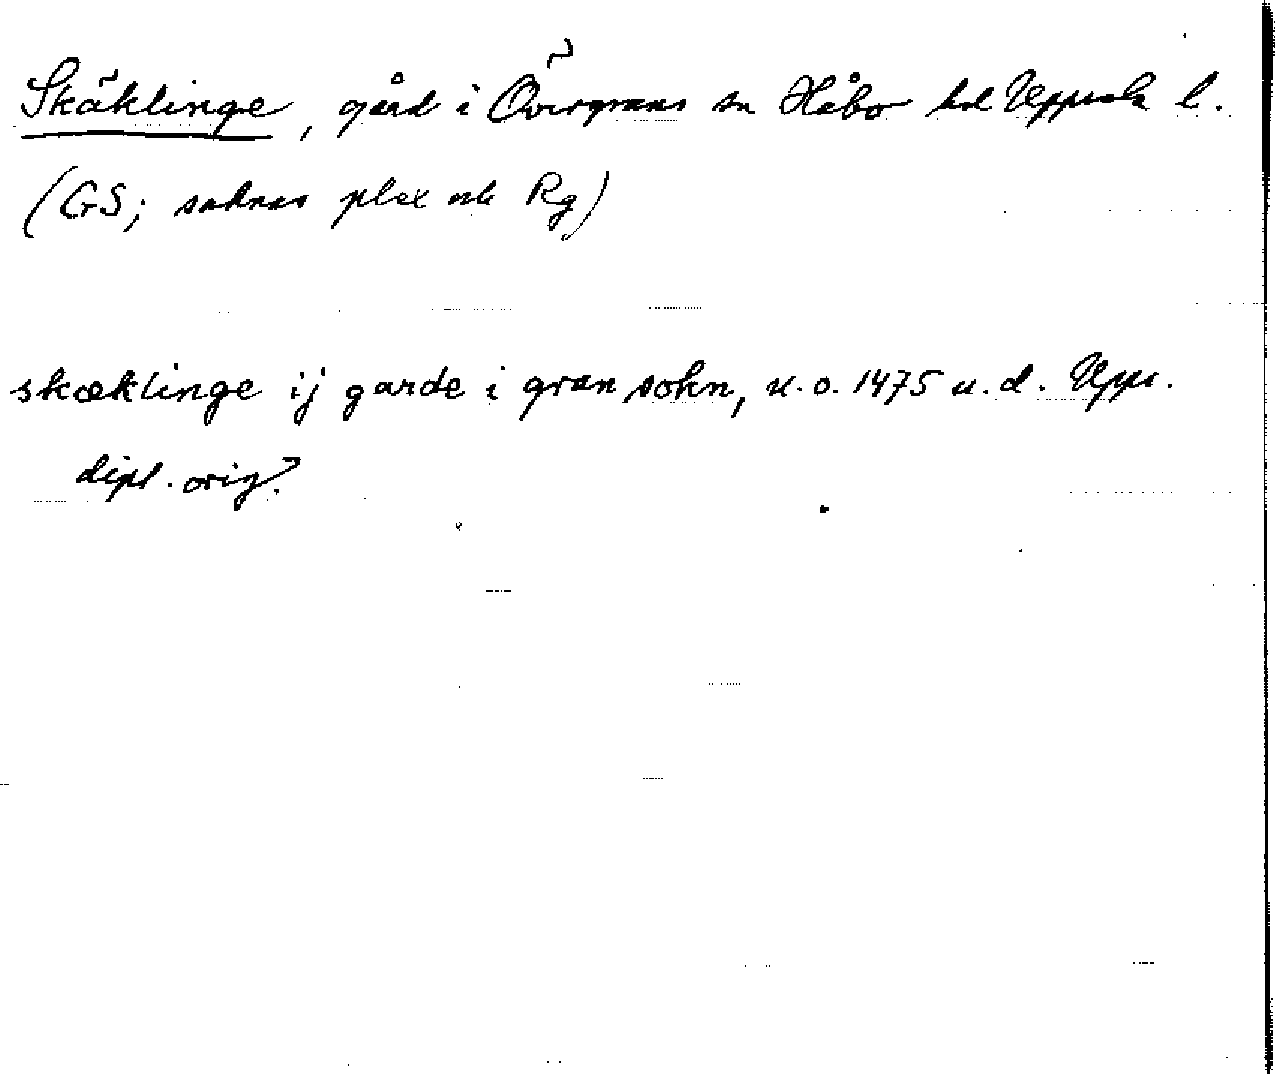 Skäklinge, gård i Övergrans sn Håbo hd Uppsala l.
(GS; saknas plex och Rg)
skæklinge ij garde i gran sokn, u.o. 1475 u.d. Upps.
dipl. orig?